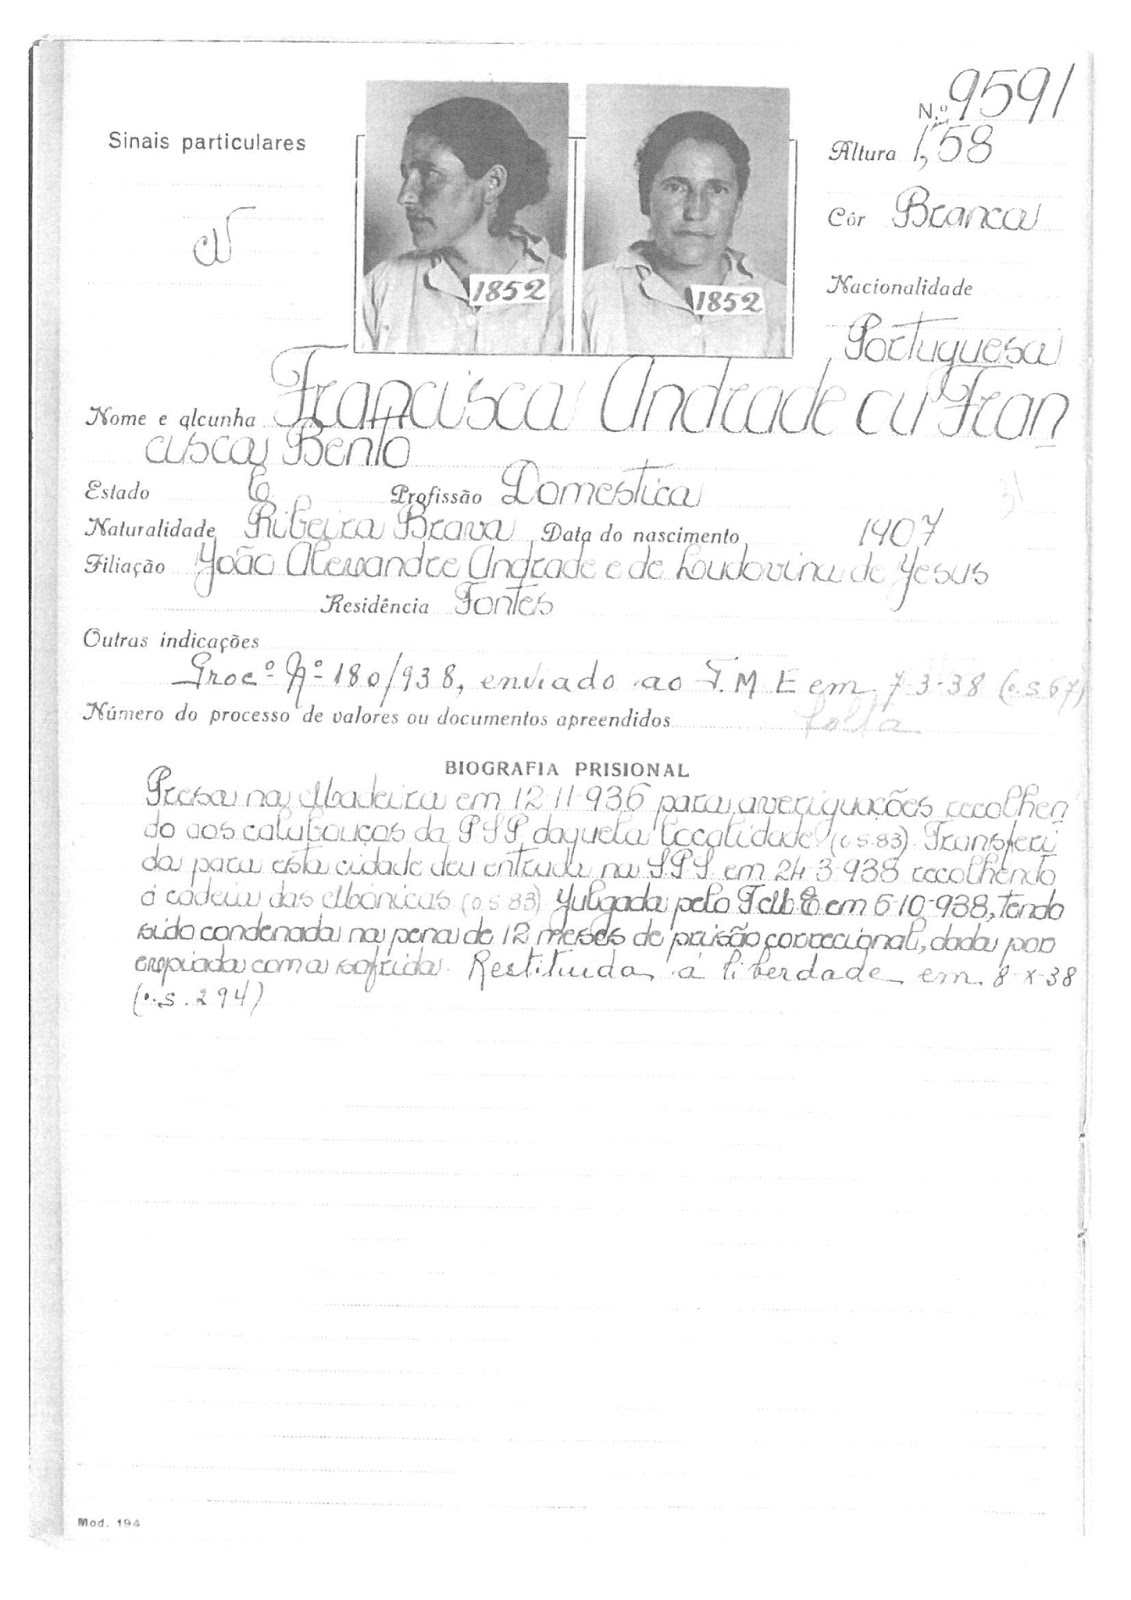 Nº 9591
Sinais particulares
Altura 1,58
Côr Branca
Nacionalidade
Portuguesa
1852
1852
Nome e alcunha Francisca Andrade ou Fran
cisca Bento
Estado C Profissão Domestica
Naturalidade Ribeira Brava Data do nascimento 1907
Filiação João Alexandre Andrade e de Loudovina de Jesus
Residência Fontes
Outras indicações
Procº Nº 180/938, enviado ao T.M.E em 7-3-38 (o.s 67)
Número do processo de valores ou documentos apreendidos
BIOGRAFIA PRISIONAL
Presa na Madeira em 12-11-936 para averiguações recolhen
do aos calabouços da PSP daquela localidade (o s 83) Transferi
da para esta cidade deu entrada na SPS em 24 3 938 recolhendo
á cadeia das Mónicas (o s 83) Julgada pelo TME em 6-10-938, tendo
sido condenada na pena de 12 meses de prisão correcional, dada por
expiada com a sofrida. Restituida á liberdade em 8-X-38
(o.s. 294)
Mod. 194